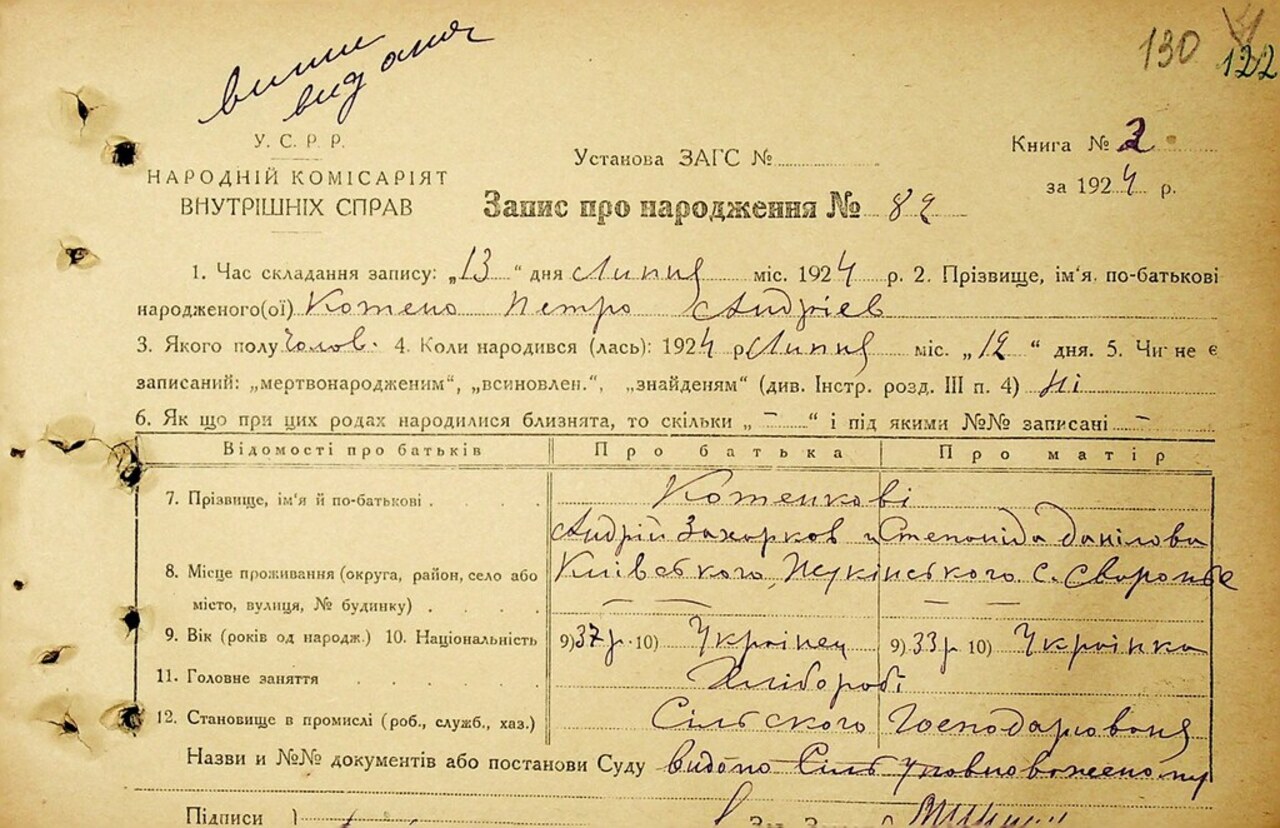 130 122
виши
видано
У. С. Р. Р.
НАРОДНІЙ КОМІСАРІЯТ
ВНУТРІШНІХ СПРАВ
Установа ЗАГС №
Книга № 2
за 1924 р.
Запис про народження № 82
1. Час складання запису: „13“ дня Липня міс. 1924 р. 2. Прізвище, ім'я, по-батькові
народженого(ої) Котено Петро Андріев
3. Якого полу Чолов. 4. Коли народився (лась): 1924 р Липня міс. „12“ дня. 5. Чи не є
записаний: „мертвонародженим“, „всиновлен.“, „знайденям“ (див. Інстр. розд. III п. 4) Ні
6. Як що при цих родах народилися близнята, то скільки „ – “ і під якими №№ записані –
Відомості про батьків Про батька Про матір
7. Прізвище, ім'я й по-батькові Котенкові
Андрій Захарков и Степонида Данілова
8. Місце проживання (округа, район, село або Київського, с.
місто, вулиця, № будинку)
9. Вік (років од народж.) 10. Національність 9) 37 р. 10) Українец 9) 33 р 10) Українка
11. Головне заняття Хліборобі
12. Становище в промислі (роб., служб., хаз.) Сільского Господарювоня
Назви и №№ документів або постанови Суду видано Сіль уповноваженому
Підписи